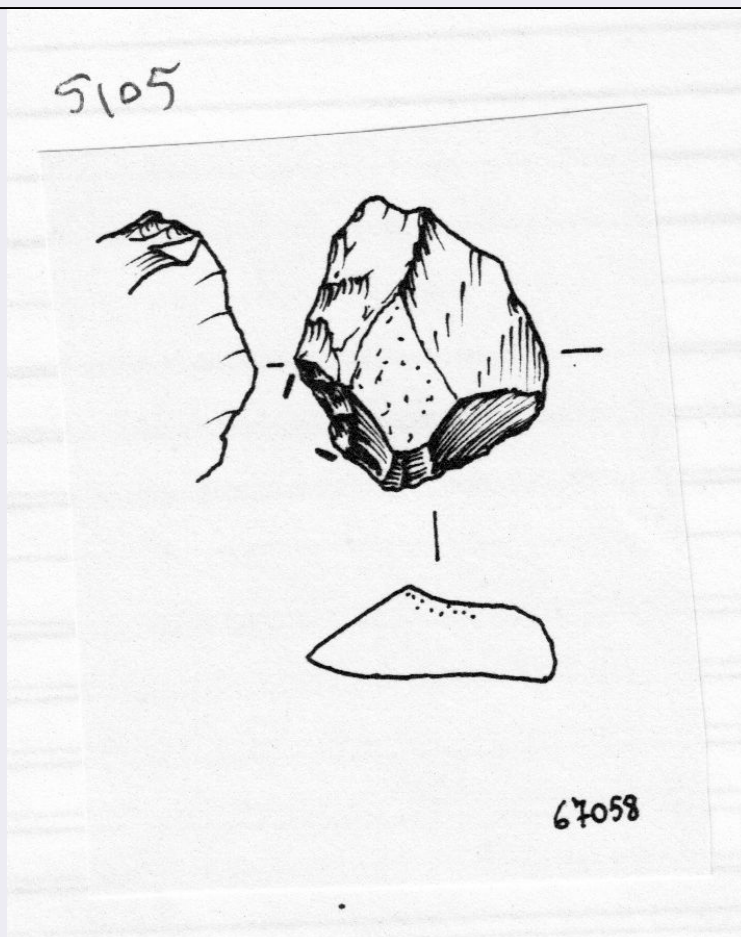 5105
67058